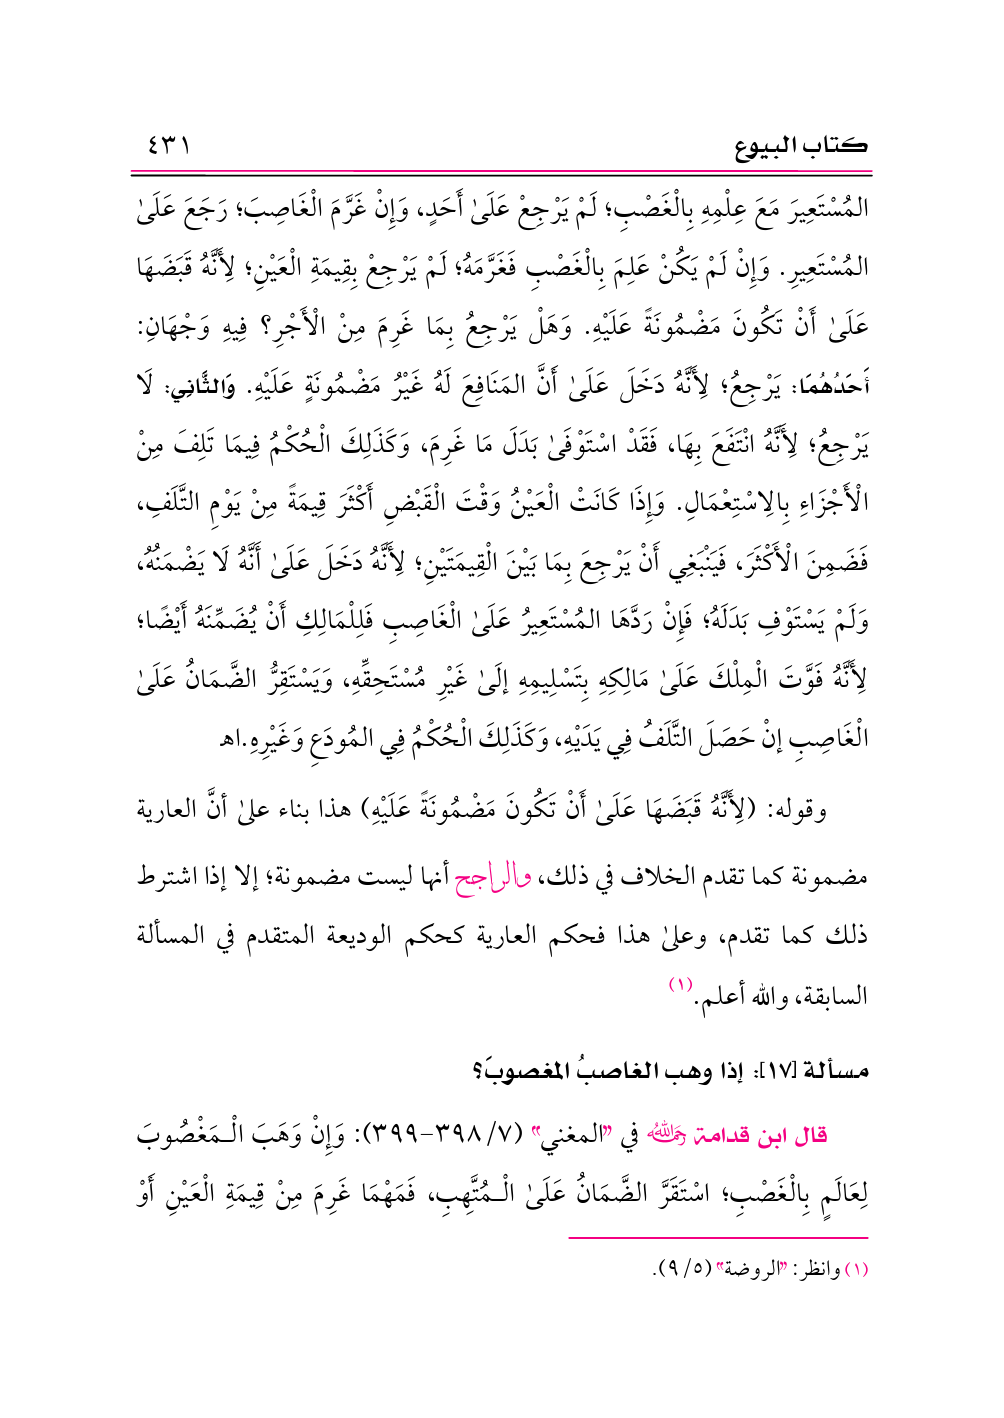 كتاب البيوع ٤٣١
المُسْتَعِيرَ مَعَ عِلْمِهِ بِالْغَصْبِ؛ لَمْ يَرْجِعْ عَلَىٰ أَحَدٍ، وَإِنْ غَرَّمَ الْغَاصِبَ؛ رَجَعَ عَلَىٰ
المُسْتَعِيرِ. وَإِنْ لَمْ يَكُنْ عَلِمَ بِالْغَصْبِ فَغَرَّمَهُ؛ لَمْ يَرْجِعْ بِقِيمَةِ الْعَيْنِ؛ لِأَنَّهُ قَبَضَهَا
عَلَىٰ أَنْ تَكُونَ مَضْمُونَةً عَلَيْهِ. وَهَلْ يَرْجِعُ بِمَا غَرِمَ مِنْ الْأَجْرِ؟ فِيهِ وَجْهَانِ:
أَحَدُهُمَا: يَرْجِعُ؛ لِأَنَّهُ دَخَلَ عَلَىٰ أَنَّ المَنَافِعَ لَهُ غَيْرُ مَضْمُونَةٍ عَلَيْهِ. وَالثَّانِي: لَا
يَرْجِعُ؛ لِأَنَّهُ انْتَفَعَ بِهَا، فَقَدْ اسْتَوْفَىٰ بَدَلَ مَا غَرِمَ، وَكَذَلِكَ الْحُكْمُ فِيمَا تَلِفَ مِنْ
الْأَجْزَاءِ بِالِاسْتِعْمَالِ. وَإِذَا كَانَتْ الْعَيْنُ وَقْتَ الْقَبْضِ أَكْثَرَ قِيمَةً مِنْ يَوْمِ التَّلَفِ،
فَضَمِنَ الْأَكْثَرَ، فَيَنْبَغِي أَنْ يَرْجِعَ بِمَا بَيْنَ الْقِيمَتَيْنِ؛ لِأَنَّهُ دَخَلَ عَلَىٰ أَنَّهُ لَا يَضْمَنُهُ،
وَلَمْ يَسْتَوْفِ بَدَلَهُ؛ فَإِنْ رَدَّهَا المُسْتَعِيرُ عَلَىٰ الْغَاصِبِ فَلِلْمَالِكِ أَنْ يُضَمِّنَهُ أَيْضًا؛
لِأَنَّهُ فَوَّتَ الْمِلْكَ عَلَىٰ مَالِكِهِ بِتَسْلِيمِهِ إلَىٰ غَيْرِ مُسْتَحِقِّهِ، وَيَسْتَقِرُّ الضَّمَانُ عَلَىٰ
الْغَاصِبِ إنْ حَصَلَ التَّلَفُ فِي يَدَيْهِ، وَكَذَلِكَ الْحُكْمُ فِي المُودَعِ وَغَيْرِهِ.اهـ
وقوله: (لِأَنَّهُ قَبَضَهَا عَلَىٰ أَنْ تَكُونَ مَضْمُونَةً عَلَيْهِ) هذا بناء علىٰ أنَّ العارية
مضمونة كما تقدم الخلاف في ذلك، والراجح أنها ليست مضمونة؛ إلا إذا اشترط
ذلك كما تقدم، وعلىٰ هذا فحكم العارية كحكم الوديعة المتقدم في المسألة
السابقة، والله أعلم.(١)
مسألة [١٧]: إذا وهب الغاصبُ المغصوبَ؟
قال ابن قدامة رحمه الله في "المغني" (٧/ ٣٩٨-٣٩٩): وَإِنْ وَهَبَ الْـمَغْصُوبَ
لِعَالَمٍ بِالْغَصْبِ؛ اسْتَقَرَّ الضَّمَانُ عَلَىٰ الْـمُتَّهِبِ، فَمَهْمَا غَرِمَ مِنْ قِيمَةِ الْعَيْنِ أَوْ
(١) وانظر: "الروضة" (٥/ ٩).